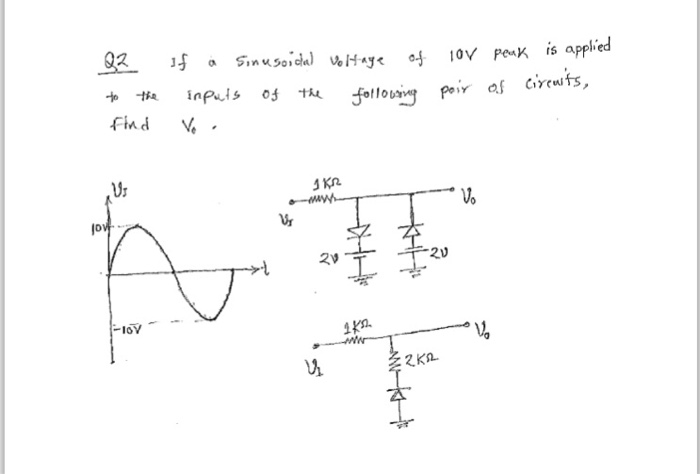 Q2 If a Sinusoidal Voltage of 10V peak is applied
to the inputs of the following pair of circuits,
find Vo .
υI
10V
t
-10V
1KΩ
υI
Vo
2V
-2V
1KΩ
υI
Vo
2KΩ